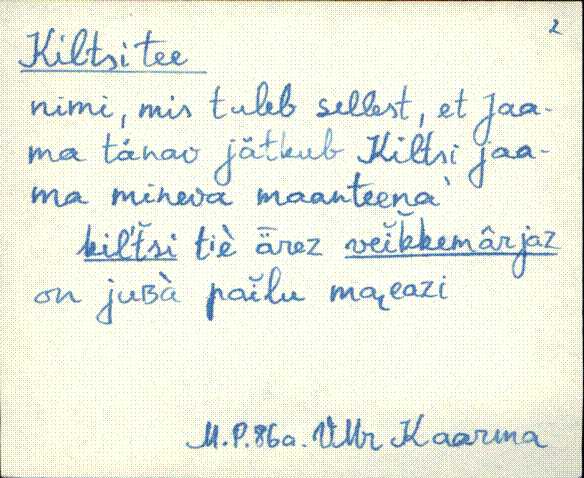 2
Kiltsi tee
nimi, mis tuleb sellest, et Jaa-
ma tänav jätkub Kiltsi jaa-
ma mineva maanteena
kil'tši tiè ärez veĭkkemârjaz
on juʙà paĭlu
M.P. 86a. VMr Kaarma